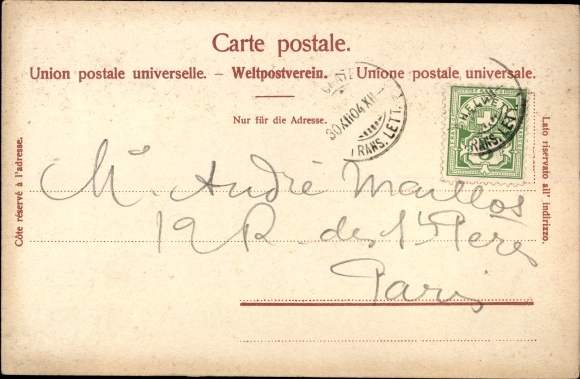 Carte postale.
Union postale universelle. – Weltpostverein. – Unione postale universale.
Nur für die Adresse.
Côte réservé à l'adresse.
Lato riservato all' indirizzo.
30.XII.04.XII
TRANS. LETT.
HELVE
TRANS. LETT.
Mr. André
des Sts Pères
Paris